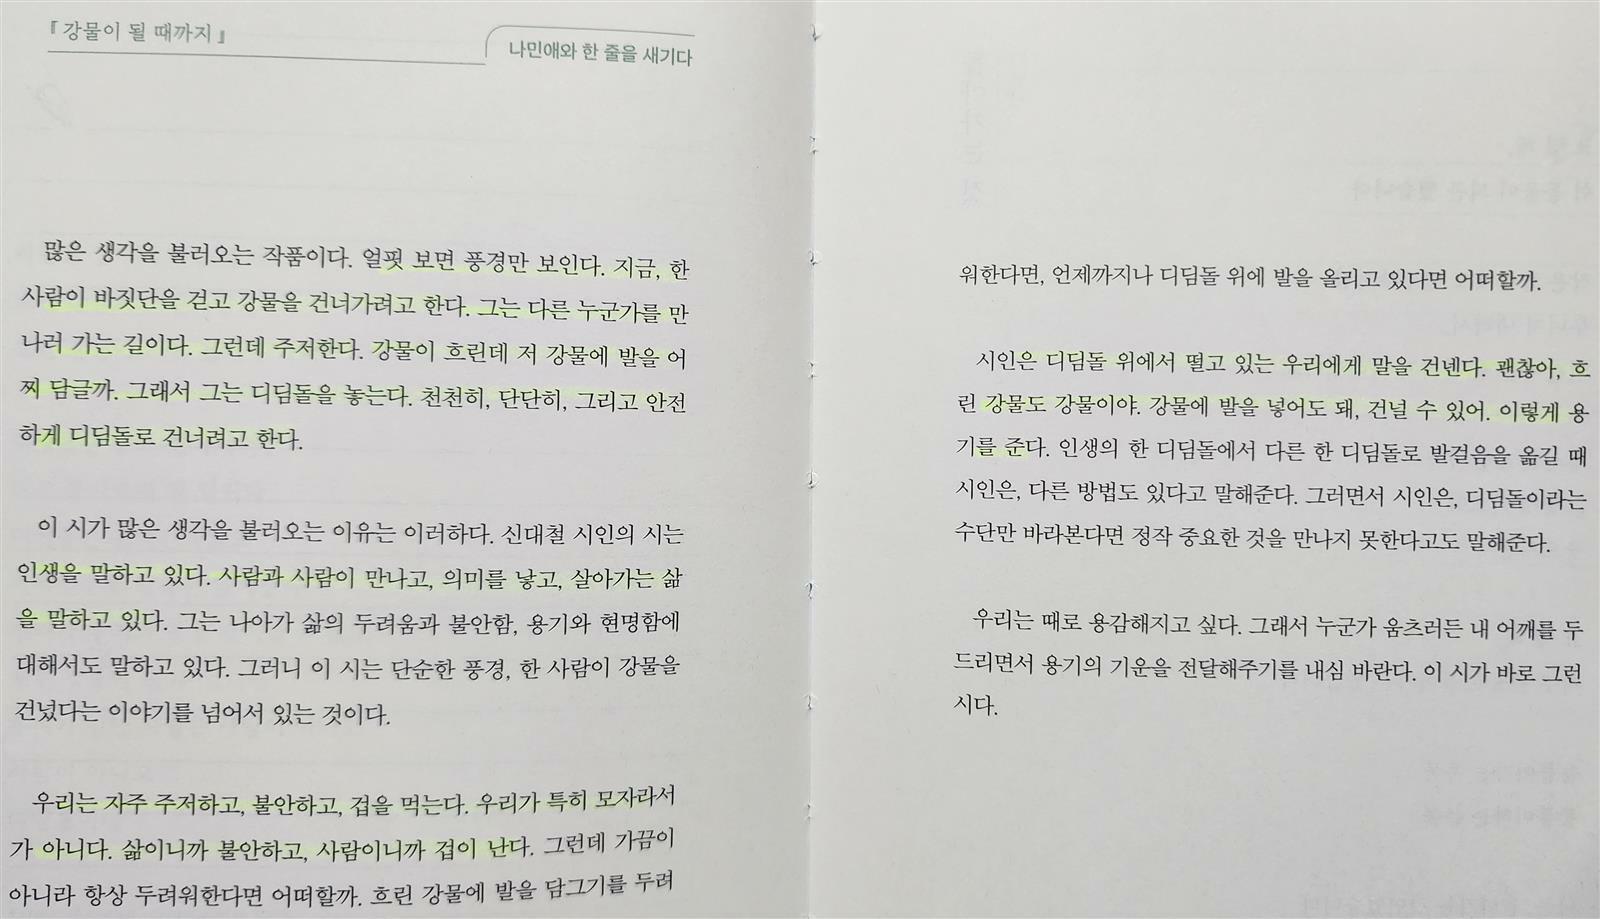 『강물이 될 때까지』
나민애와 한 줄을 새기다
많은 생각을 불러오는 작품이다. 얼핏 보면 풍경만 보인다. 지금, 한
사람이 바짓단을 걷고 강물을 건너가려고 한다. 그는 다른 누군가를 만
나러 가는 길이다. 그런데 주저한다. 강물이 흐린데 저 강물에 발을 어
찌 담글까. 그래서 그는 디딤돌을 놓는다. 천천히, 단단히, 그리고 안전
하게 디딤돌로 건너려고 한다.
이 시가 많은 생각을 불러오는 이유는 이러하다. 신대철 시인의 시는
인생을 말하고 있다. 사람과 사람이 만나고, 의미를 낳고, 살아가는 삶
을 말하고 있다. 그는 나아가 삶의 두려움과 불안함, 용기와 현명함에
대해서도 말하고 있다. 그러니 이 시는 단순한 풍경, 한 사람이 강물을
건넜다는 이야기를 넘어서 있는 것이다.
우리는 자주 주저하고, 불안하고, 겁을 먹는다. 우리가 특히 모자라서
가 아니다. 삶이니까 불안하고, 사람이니까 겁이 난다. 그런데 가끔이
아니라 항상 두려워한다면 어떠할까. 흐린 강물에 발을 담그기를 두려
워한다면, 언제까지나 디딤돌 위에 발을 올리고 있다면 어떠할까.
시인은 디딤돌 위에서 떨고 있는 우리에게 말을 건넨다. 괜찮아, 흐
린 강물도 강물이야. 강물에 발을 넣어도 돼, 건널 수 있어. 이렇게 용
기를 준다. 인생의 한 디딤돌에서 다른 한 디딤돌로 발걸음을 옮길 때
시인은, 다른 방법도 있다고 말해준다. 그러면서 시인은, 디딤돌이라는
수단만 바라본다면 정작 중요한 것을 만나지 못한다고도 말해준다.
우리는 때로 용감해지고 싶다. 그래서 누군가 움츠러든 내 어깨를 두
드리면서 용기의 기운을 전달해주기를 내심 바란다. 이 시가 바로 그런
시다.